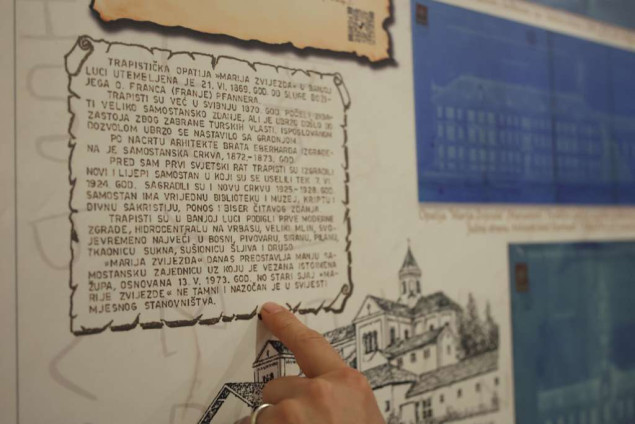 TRAPISTIČKA OPATIJA »MARIJA ZVIJEZDA« U BANJOJ
LUCI UTEMELJENA JE 21. VI. 1869. GOD. OD SLUGE BOŽI-
JEGA O. FRANCA (FRANJE) PFANNERA.
TRAPISTI SU VEĆ U SVIBNJU 1870. GOD. POČELI GRADI-
TI VELIKO SAMOSTANSKO ZDANJE, ALI JE UBRZO DOŠLO DO
ZASTOJA ZBOG ZABRANE TURSKIH VLASTI. ISPOSLOVANOM
DOZVOLOM UBRZO SE NASTAVILO SA GRADNJOM.
PO NACRTU ARHITEKTE BRATA EBERHARDA IZGRAĐE-
NA JE SAMOSTANSKA CRKVA, 1872.-1873. GOD.
PRED SAM PRVI SVJETSKI RAT TRAPISTI SU IZGRADILI
NOVI I LIJEPI SAMOSTAN U KOJI SU SE USELILI TEK 7. VI.
1924. GOD. SAGRADILI SU I NOVU CRKVU 1925.-1928. GOD.
SAMOSTAN IMA VRIJEDNU BIBLIOTEKU I MUZEJ, KRIPTU I
DIVNU SAKRISTIJU, PONOS I BISER ČITAVOG ZDANJA.
TRAPISTI SU U BANJOJ LUCI PODIGLI PRVE MODERNE
ZGRADE, HIDROCENTRALU NA VRBASU, VELIKI MLIN, SVO-
JEVREMENO NAJVEĆI U BOSNI, PIVOVARU, SIRANU, PILANU,
TKAONICU SUKNA, SUŠIONICU ŠLJIVA I DRUGO.
»MARIJA ZVIJEZDA« DANAS PREDSTAVLJA MANJU SA-
MOSTANSKU ZAJEDNICU UZ KOJU JE VEZANA ISTOIMENA
ŽUPA, OSNOVANA 13. V. 1973. GOD. NO STARI SJAJ »MA-
RIJE ZVIJEZDE« NE TAMNI I NAZOČAN JE U SVIJESTI
MJESNOG STANOVNIŠTVA.